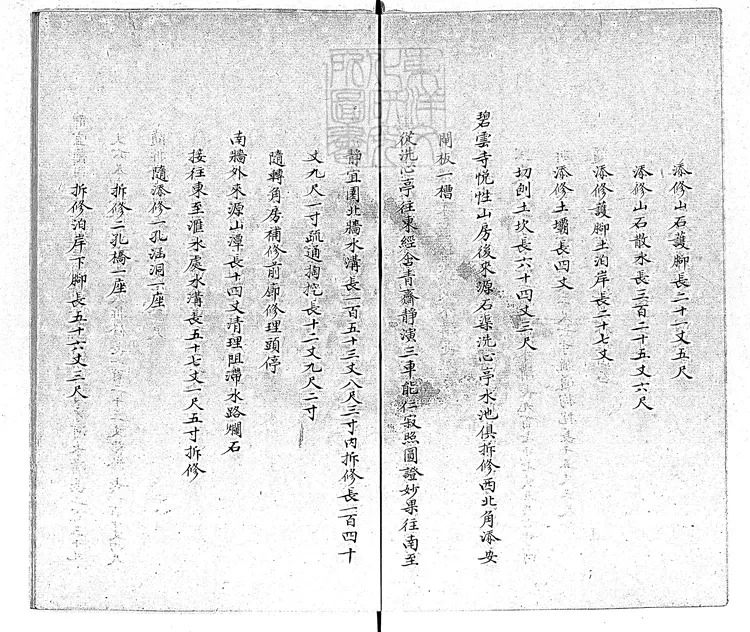 添修山石護腳長二十一丈五尺
添修山石散水長三百二十五丈六尺
添修護腳土泊岸長二十七丈
添修土壩長四丈
切刨土坎長六十四丈三尺
碧雲寺悅性山房後來源石渠洗心亭水池俱拆修西北角添安
閘板一槽
從洗心亭往東經含青齋靜演三車能仁寂照圓證妙果往南至
靜宜園北牆水溝長一百五十三丈八尺三寸內拆修長一百四十
丈九尺一寸疏通掏挖長十二丈九尺二寸
隨轉角房補修前廊修理頭停
南牆外來源山潭長十四丈清理阻滯水路爛石
接往東至滙水處水溝長五十七丈一尺五寸拆修
隨添修一孔涵洞一座
拆修二孔橋一座
拆修泊岸下腳長五十六丈三尺